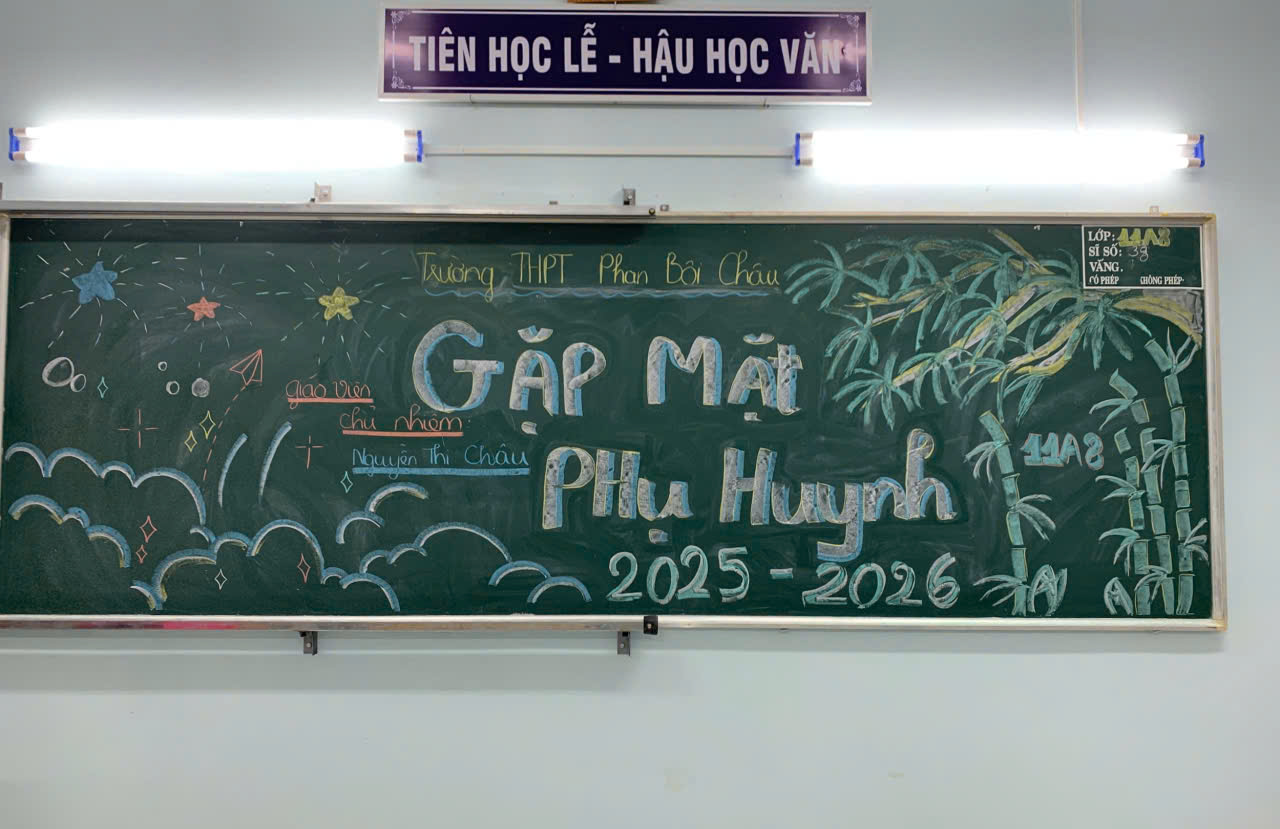 TIÊN HỌC LỄ - HẬU HỌC VĂN
Trường THPT Phan Bội Châu
LỚP: 11A8
SĨ SỐ: 38
VẮNG.
CÓ PHÉP KHÔNG PHÉP
GẶP MẶT
giáo viên
chủ nhiệm:
Nguyễn Thị Châu
PHỤ Huynh
11A8
2025 - 2026